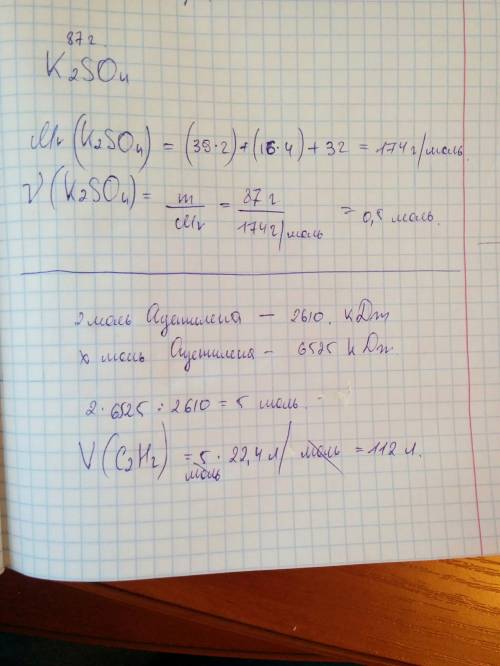 87 г.
K₂SO₄
Mr (K₂SO₄) = (39·2) + (16·4) + 32 = 174 г/моль.
ν (K₂SO₄) = m/Mr = 87 г/174 г/моль = 0,5 моль.
2 моль Ацетилена — 2610. кДж
x моль Ацетилена – 6525 кДж
2·6525 : 2610 = 5 моль.
V (C₂H₂) = 5 моль · 22,4 л/моль = 112 л.